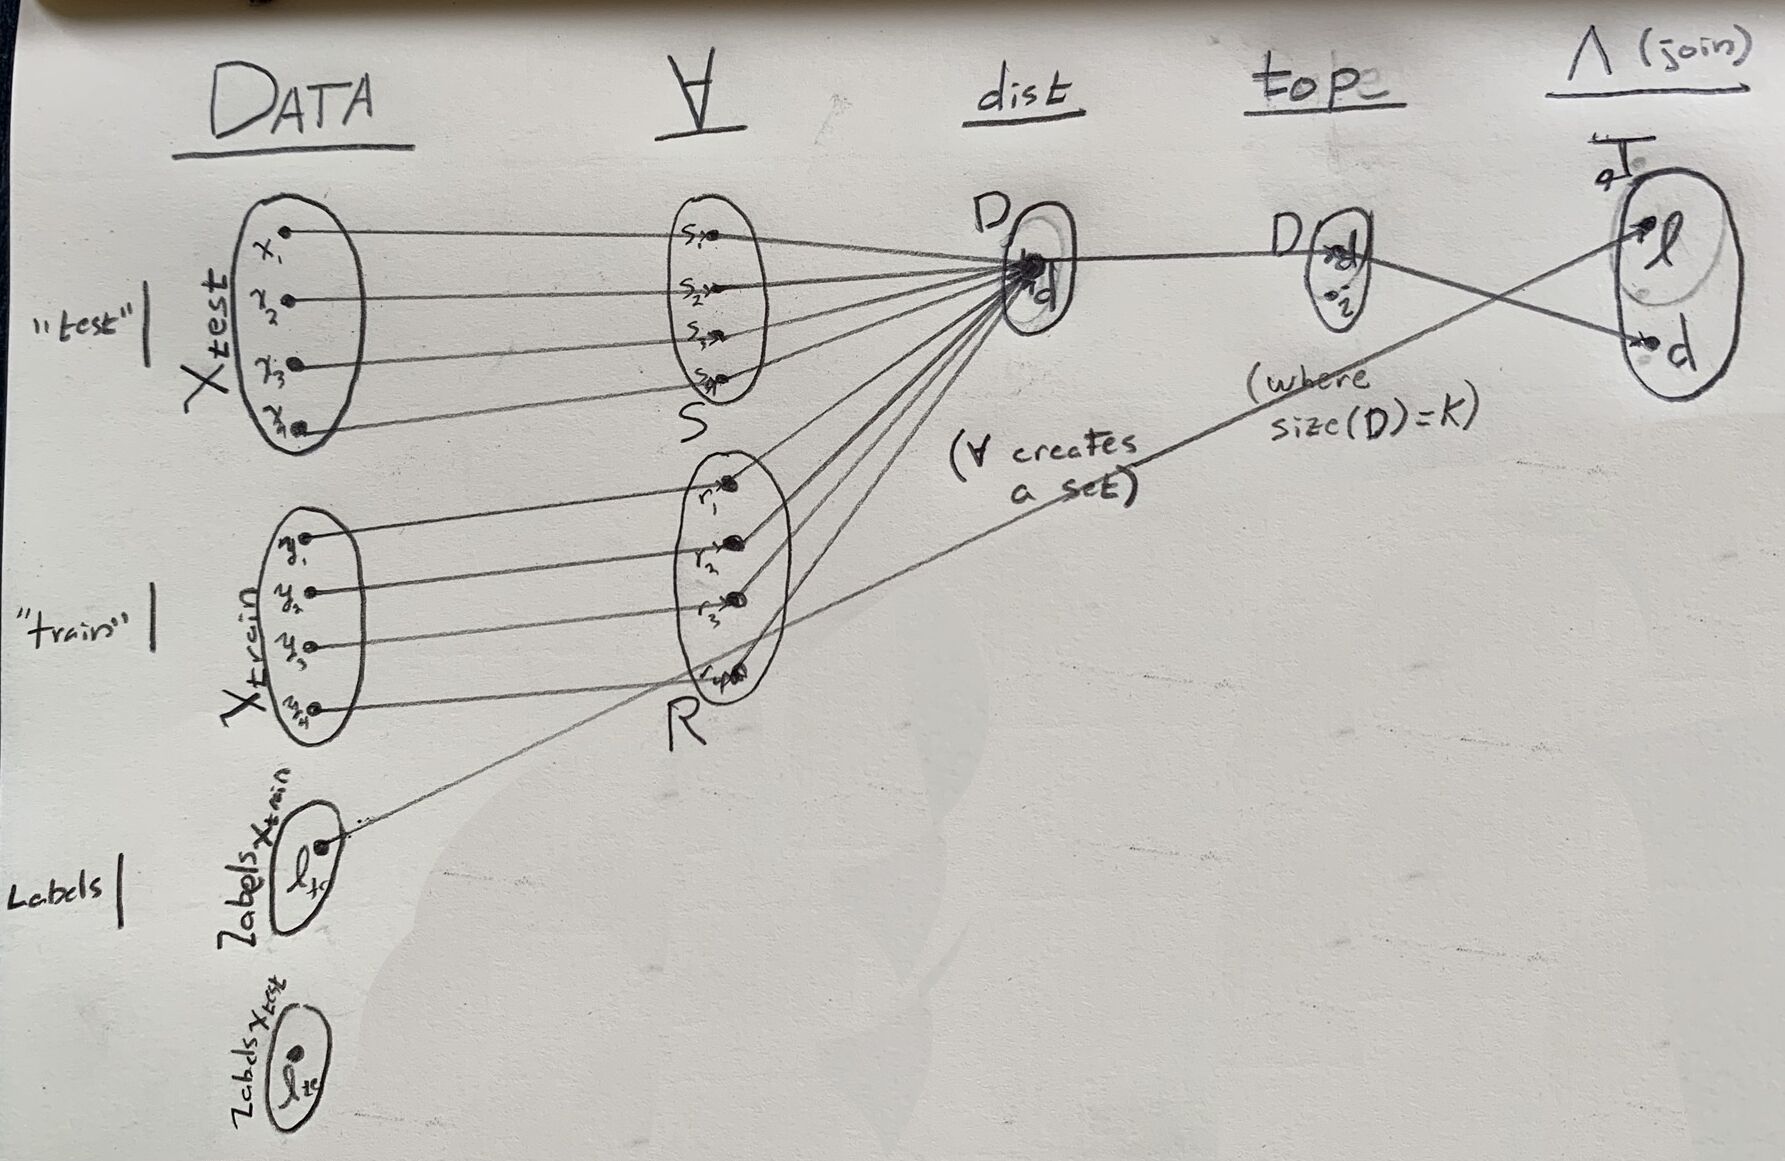 DATA
∀
dist
top
Λ (join)
"test"
Xtest
x₁
x₂
x₃
x₄
s₁
s₂
s₃
s₄
S
D
d
D
d
2
J
l
d
(where
size(D)=K)
(∀ creates
a set)
"train"
Xtrain
y₁
y₂
y₃
y₄
r₁
r₂
r₃
r₄
R
Labels
LabelsXtrain
l
LabelsXtest
lte